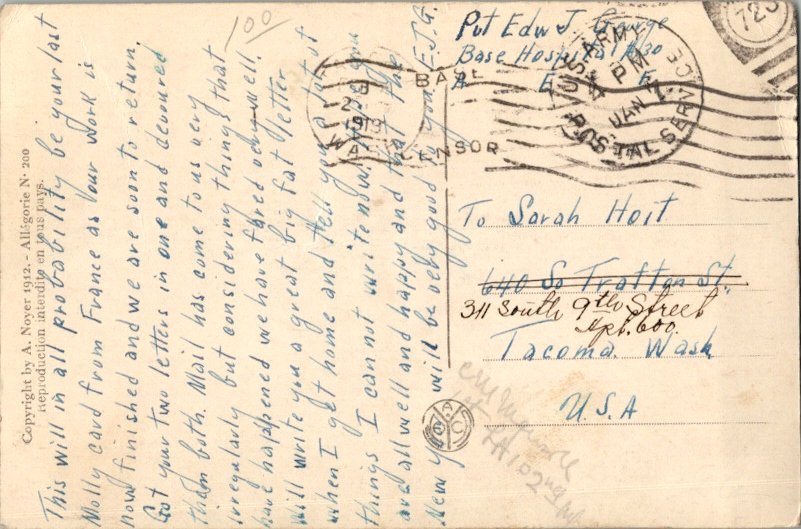 Copyright by A. Noyer 1912. - Allégorie N· 200
Reproduction interdite en tous pays.
100
This will in all probability be your last
Molly card from France as our work is
now finished and we are soon to return.
Got your two letters in one and devoured
them both. Mail has come to us very
irregularly but considering things that
have happened we have fared very well.
Will write you a great big fat letter
when I get home and tell you a lot of
things I can not write now. Hope you
are all well and happy and that the
New year will be very good to you. E.J.G.
Pvt Edw J. George
Base Hospital #30
A E F
U.S. ARMY
PM
JAN
POSTAL SERVICE
BASE
CENSOR
1919
723
To Sarah Hoit
640 So Trafton St.
311 South 9th Street
Apt. 600.
Tacoma Wash
U.S.A